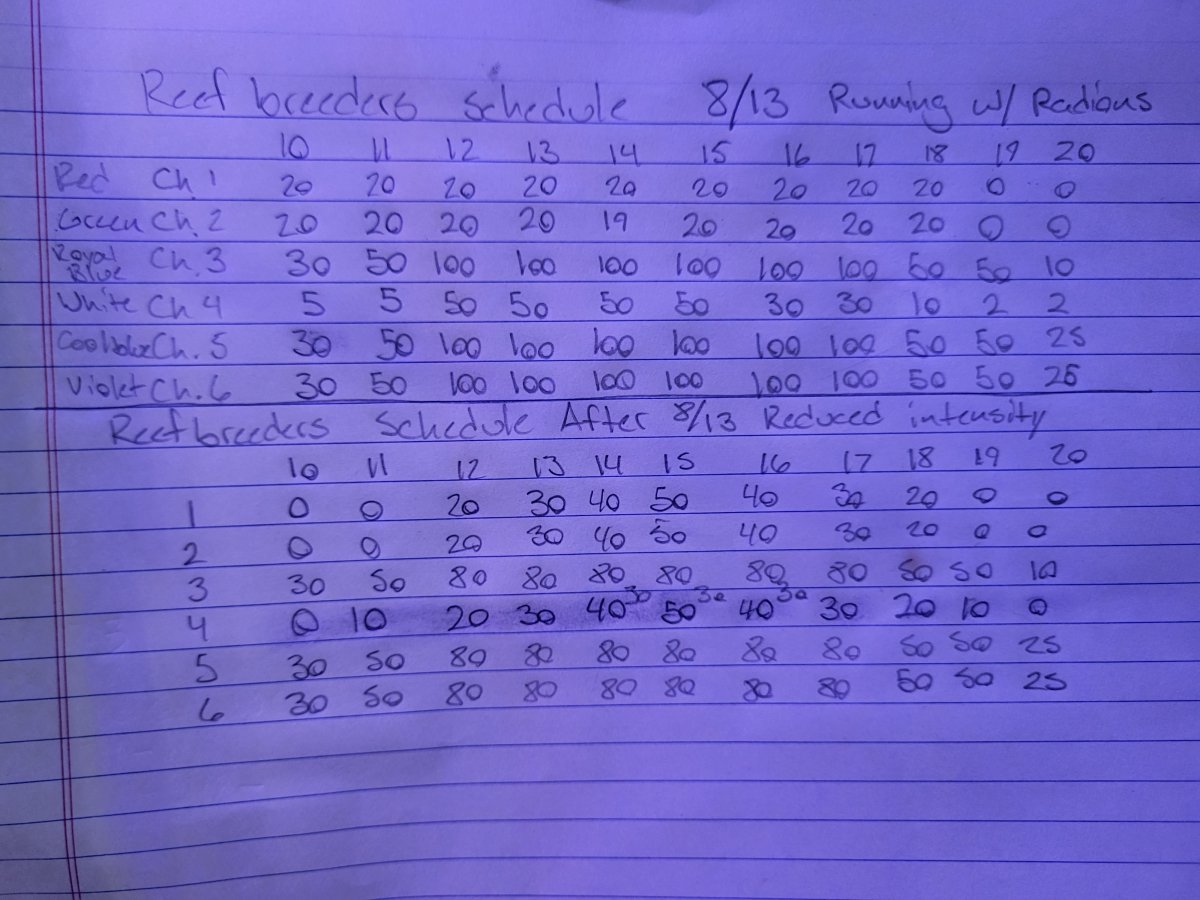 Reef breeders Schedule 8/13 Running w/ Radions
10 11 12 13 14 15 16 17 18 19 20
Red Ch. 1 20 20 20 20 20 20 20 20 20 0 0
Green Ch. 2 20 20 20 20 19 20 20 20 20 0 0
Royal Blue Ch. 3 30 50 100 100 100 100 100 100 50 50 10
White Ch 4 5 5 50 50 50 50 30 30 10 2 2
Cool blue Ch. 5 30 50 100 100 100 100 100 100 50 50 25
Violet Ch. 6 30 50 100 100 100 100 100 100 50 50 25
Reefbreeders Schedule After 8/13 Reduced intensity
10 11 12 13 14 15 16 17 18 19 20
1 0 0 20 30 40 50 40 30 20 0 0
2 0 0 20 30 40 50 40 30 20 0 0
3 30 50 80 80 80 80 80 80 50 50 10
4 0 10 20 30 40 30 50 30 40 30 30 20 10 0
5 30 50 80 80 80 80 80 80 50 50 25
6 30 50 80 80 80 80 80 80 50 50 25